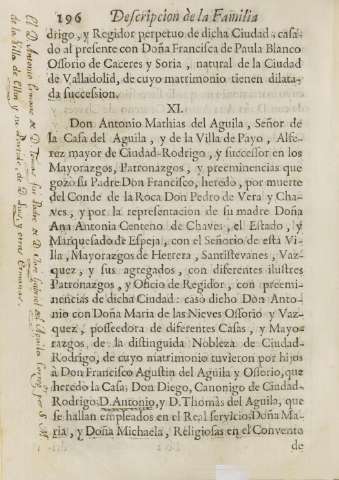 196 Descripcion de la Familia
drigo, y Regidor perpetuo de dicha Ciudad, casa-
do al presente con Doña Francisca de Paula Blanco
Ossorio de Caceres y Soria, natural de la Ciudad
de Valladolid, de cuyo matrimonio tienen dilata-
da succession.
XI.
Don Antonio Mathias del Aguila, Señor de
la Casa del Aguila, y de la Villa de Payo, Alfe-
rez mayor de Ciudad-Rodrigo, y successor en los
Mayorazgos, Patronazgos, y preeminencias que
gozó su Padre Don Francisco, heredó, por muerte
del Conde de la Roca Don Pedro de Vera y Cha-
ves, y por la representacion de su madre Doña
Ana Antonia Centeno de Chaves, el Estado, y
Marquesado de Espeja, con el Señorio de esta Vi-
lla, Mayorazgos de Herrera, Santistevanes, Vaz-
quez, y sus agregados, con diferentes ilustres
Patronazgos, y Oficio de Regidor, con preemi-
nencias de dicha Ciudad: casó dicho Don Anto-
nio con Doña Maria de las Nieves Ossorio y Vaz-
quez, posseedora de diferentes Casas, y Mayo-
razgos, de la distinguida Nobleza de Ciudad-
Rodrigo, de cuyo matrimonio tuvieron por hijos
à Don Francisco Agustin del Aguila y Ossorio, que
heredó la Casa; Don Diego, Canonigo de Ciudad-
Rodrigo, D. Antonio, y D. Thomàs del Aguila, que
se hallan empleados en el Real servicio; Doña Ma-
ria, y Doña Michaela, Religiosas en el Convento
de
El D. Antonio hermano de D. Tomas fue Padre de D. Aguila
de la Villa de y su de D. Luis, y otros hermanos.